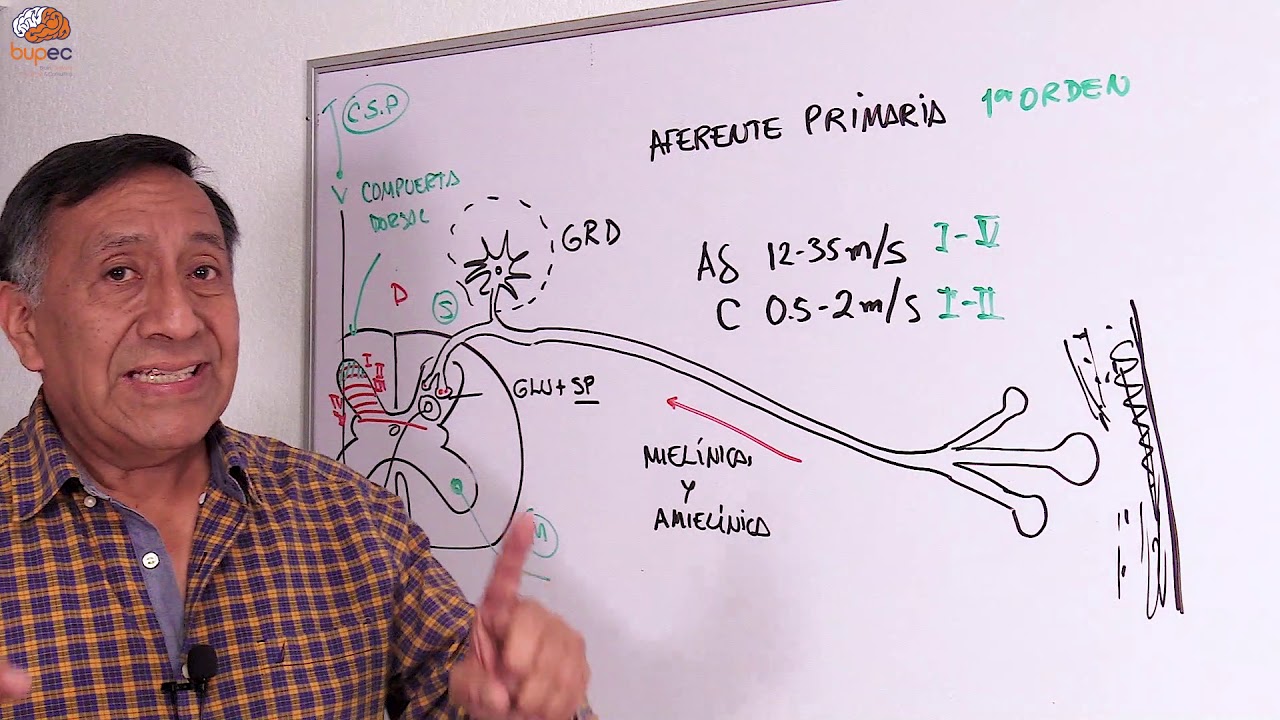 bupec
C.S.P
AFERENTE PRIMARIA 1ª ORDEN
COMPUERTA
DORSAL
GRD
Aδ 12-35m/s I-V
C 0.5-2m/s I-II
D
S
I
II
III
IV
V
GLU + SP
MIELÍNICA
Y
AMIELÍNICA
M